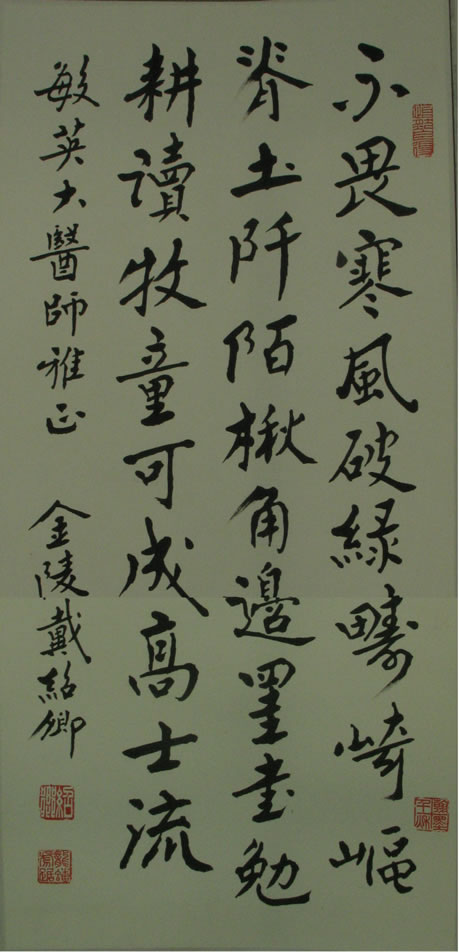 不畏寒風破綠疇崎嶇
脊土阡陌楸角邊罣書勉
耕讀牧童可成高士流
敏英大醫師雅正 金陵戴紹卿